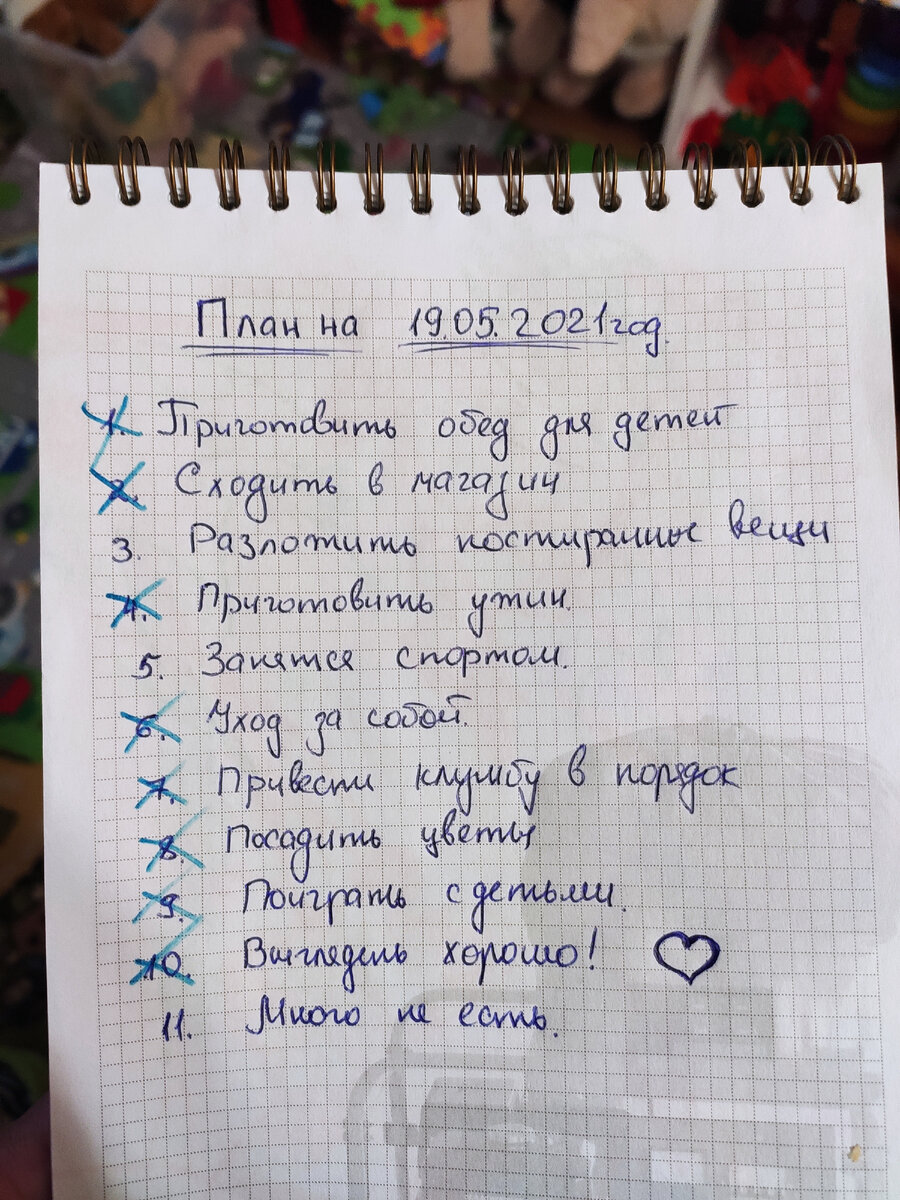 План на 19.05.2021год.
1. Приготовить обед для детей
2. Сходить в магазин
3. Разложить постиранные вещи
4. Приготовить ужин.
5. Занятся спортом.
6. Уход за собой.
7. Привести клумбу в порядок
8. Посадить цветы
9. Поиграть с детьми.
10. Выглядень хорошо!
11. Много не есть.